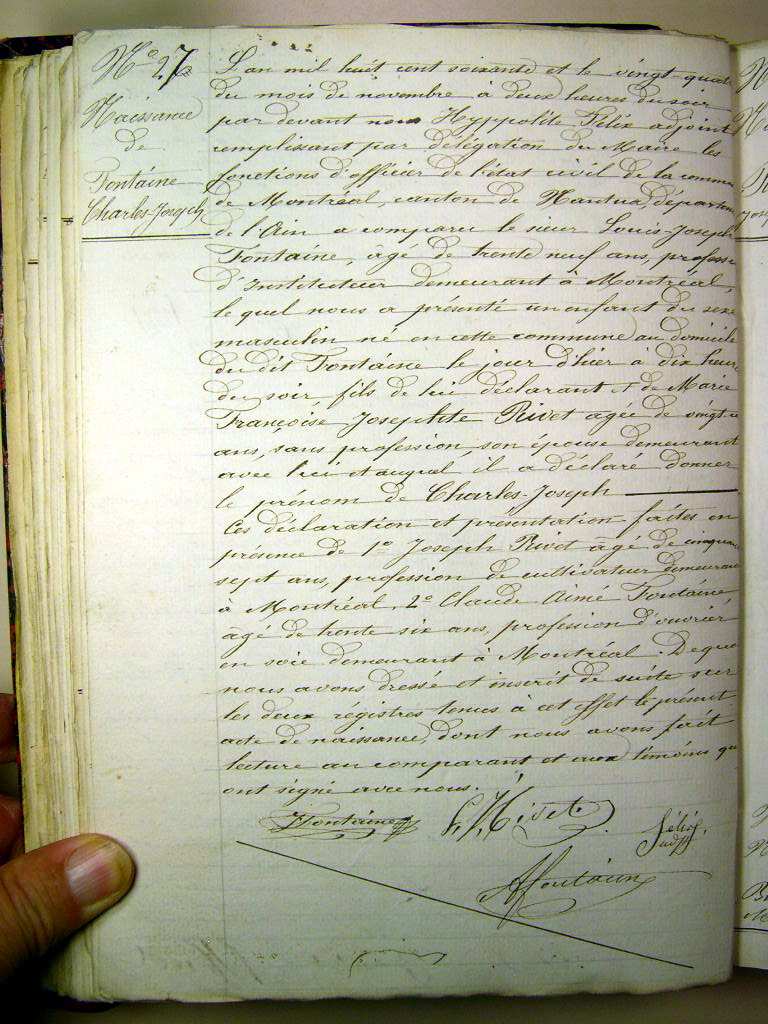 N° 27
Naissance
de
Fontaine
Charles-Joseph
L'an mil huit cent soixante et le vingt-quat
du mois de novembre à deux heures du soir
par devant nous Hyppolite Félix adjoint
remplissant par délégation du Maire les
fonctions d'officier de l'état civil de la commun
de Montréal, canton de Nantua, départem
de l'Ain a comparu le sieur Louis-Joseph
Fontaine, âgé de trente neuf ans, professi
d'Instituteur demeurant à Montréal,
le quel nous a présenté un enfant du sexe
masculin né en cette commune au domicile
du dit Fontaine le jour d'hier à dix heure
du soir, fils de lui déclarant et de Marie
Françoise Josephte Rivet agée de vingt-
ans, sans profession, son épouse demeurant
avec lui et auquel il a déclaré donner
le prénom de Charles-Joseph
Ces déclaration et présentation faites en
présence de 1° Joseph Rivet âgé de cinquan
sept ans, profession de cultivateur demeuran
à Montréal, 2° Claude Aimé Fontaine,
âgé de trente six ans, profession d'ouvrier
en soie demeurant à Montréal. De quoi
nous avons dressé et inscrit de suite sur
les deux régistres tenus à cet effet le présent
acte de naissance, dont nous avons fait
lecture au comparant et aux témoins qu
ont signé avec nous.
Fontaine
Rivet
Félix,
adjt
Fontaine